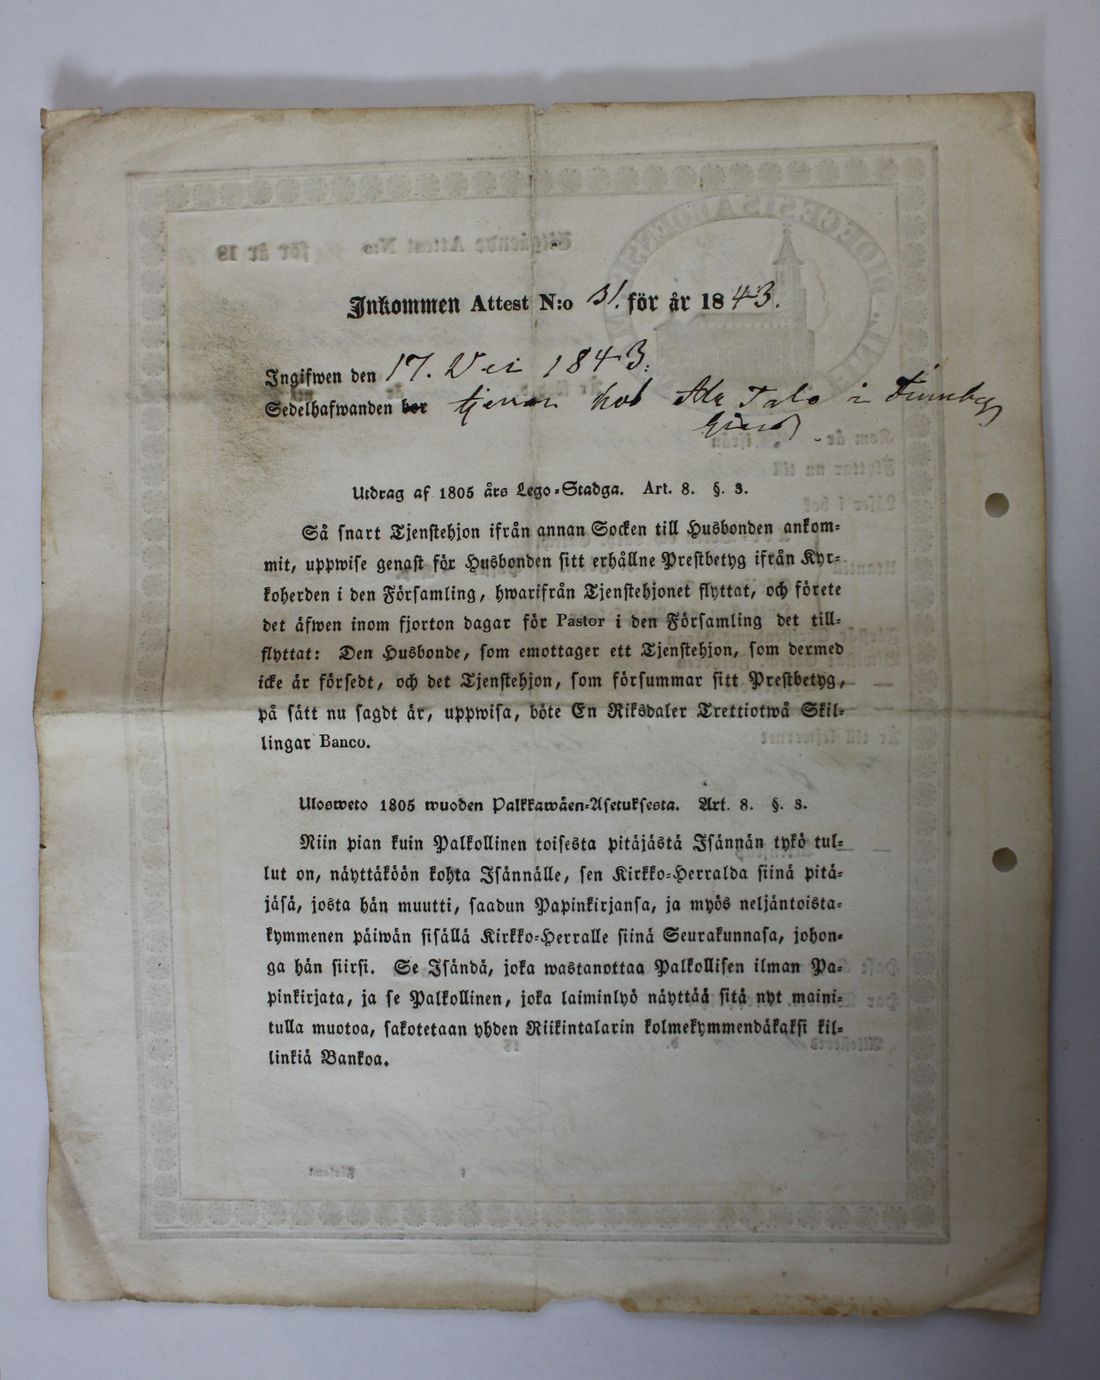 Inkommen Attest N:o 31. för år 1843.
Ingifwen den 17. 1843.
Sedelhafwanden bor tjenar hos i
Utdrag af 1805 års Lego-Stadga. Art. 8. §. 3.
Så snart Tjenstehjon ifrån annan Socken till Husbonden ankom-
mit, uppwise genast för Husbonden sitt erhållne Prestbetyg ifrån Kyr-
koherden i den Församling, hwarifrån Tjenstehjonet flyttat, och förete
det äfwen inom fjorton dagar för Pastor i den Församling det till-
flyttat: Den Husbonde, som emottager ett Tjenstehjon, som dermed
icke är försedt, och det Tjenstehjon, som försummar sitt Prestbetyg,
på sätt nu sagdt är, uppwisa, böte En Riksdaler Trettiotwå Skil-
lingar Banco.
Ulosweto 1805 wuoden Palkkawäen-Asetuksesta. Art. 8. §. 3.
Niin pian kuin Palkollinen toisesta pitäjästä Isännän tykö tul-
lut on, näyttäköön kohta Isännälle, sen Kirkko-Herralda siinä pitä-
jäsä, josta hän muutti, saadun Papinkirjansa, ja myös neljäntoista-
kymmenen päiwän sisällä Kirkko-Herralle siinä Seurakunnasa, johon-
ga hän siirsi. Se Isändä, joka wastanottaa Palkollisen ilman Pa-
pinkirjata, ja se Palkollinen, joka laiminlyö näyttää sitä nyt maini-
tulla muotoa, sakotetaan yhden Riikintalarin kolmekymmendäkaksi kil-
linkiä Bankoa.